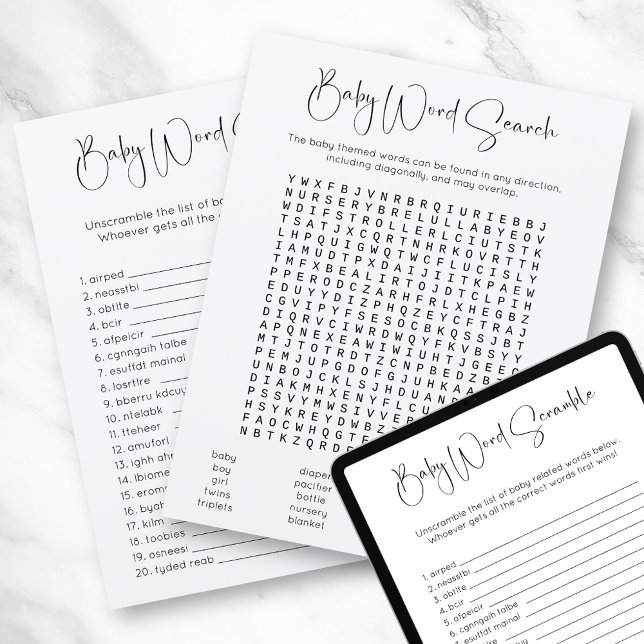 Baby Word S
Unscramble the list of baby
Whoever gets all the correct
1. airped
2. neasstbi
3. obtlte
4. bcir
5. afpeicir
6. cgnngaih talbe
7. esuffdt mainal
8. losrtlre
9. bberru kdcuy
10. ntelabk
11. tteheer
12. amuforl
13. ighh ahr
14. lbiome
15. erom
16. byah
17. kilm
18. toobies
19. osneest
20. tyded reab
Baby Word Search
The baby themed words can be found in any direction,
including diagonally, and may overlap.
YWXFBJVNRBRQIURIEBBJ
NURSERYBRELULLABYEOV
WDIFSTROLLERLCIUTSTK
TSATJXCQRTNHRKOVRTTH
LHPQUIGWQTWCFLUCISLY
IAMUDTPXDAIJIITKPAEW
TMFXBEALIRTOJDTCLPIH
PPERODCZARHFRLXHEGBZ
EDUYYDIZPHQZEYCFTRAJ
CGVIPYFSESOCBKQSSJBT
DIQRVCIWRDWQYFKVBSYY
APQNEXEAWIWIUHTJGEEC
MTJTOTRDTZCNPBEDZBT
PEMJUPGDOFGJUHKAA
UNBOJCKLSJHDUAN
DIAKMHXENYFLCU
PSSVYMWSIVVEP
HSYKREYDWBZ
FAOCWHQGTF
NBTKZQRD
baby
boy
girl
twins
triplets
diaper
pacifier
bottle
nursery
blanket
Baby Word Scramble
Unscramble the list of baby related words below.
Whoever gets all the correct words first wins!
1. airped
2. neasstbi
3. obtlte
4. bcir
5. afpeicir
6. cgnngaih talbe
7. esuffdt mainal
8. losrtlre
9. bberru kdcuy